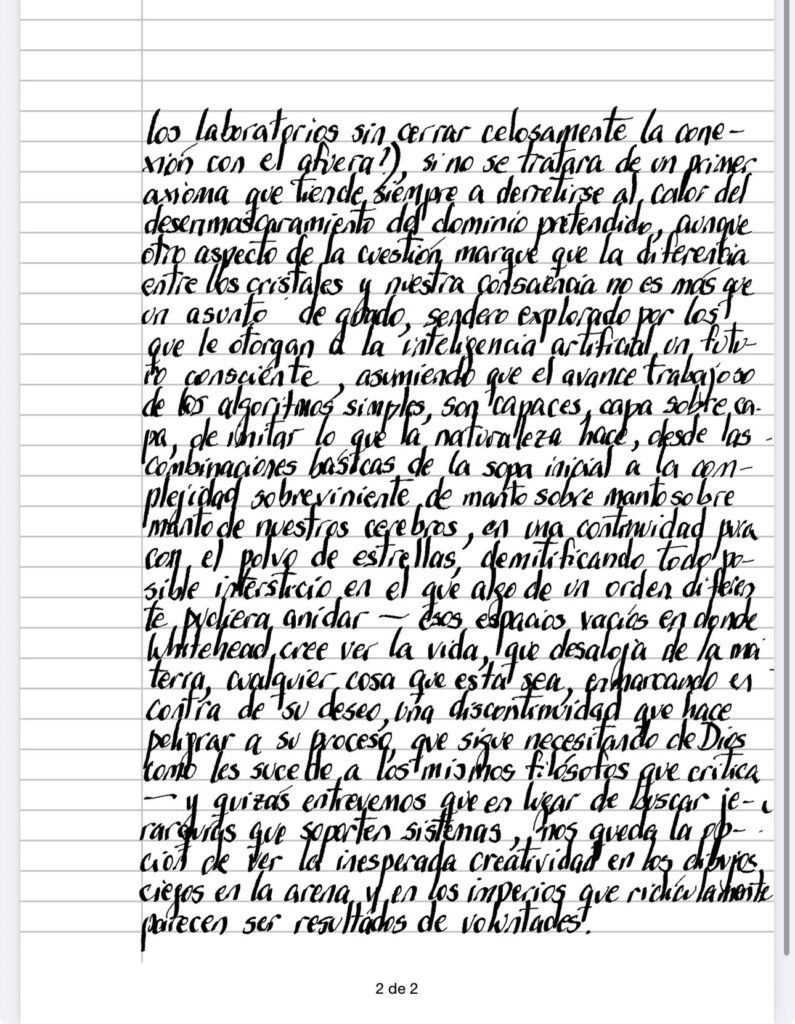 los laboratorios sin cerrar celosamente la cone-
xión con el afuera?), si no se tratara de un primer
axioma que tiende siempre a derretirse al calor del
desenmascaramiento del dominio pretendido, aunque
otro aspecto de la cuestión marque que la diferencia
entre los cristales y nuestra consciencia no es más que
un asunto de grado, sendero explorado por los
que le otorgan a la inteligencia artificial un futu-
ro consciente, asumiendo que el avance trabajoso
de los algoritmos simples, son capaces, capa sobre ca-
pa, de imitar lo que la naturaleza hace, desde las
combinaciones básicas de la sopa inicial a la com-
plejidad sobreviniente de manto sobre manto sobre
manto de nuestros cerebros, en una continuidad pura
con el polvo de estrellas, demitificando todo po-
sible intersticio en el que algo de un orden diferen
te pudiera anidar — esos espacios vacíos en donde
Whitehead cree ver la vida, que desaloja de la ma
terra, cualquier cosa que esta sea, enmarcando en
contra de su deseo, una discontinuidad que hace
peligrar a su proceso, que sigue necesitando de Dios
como les sucede a los mismos filósofos que critica
— y quizás entrevemos que en lugar de buscar je-
rarquías que soporten sistemas, nos queda la op-
ción de ver la inesperada creatividad en los dibujos
ciegos en la arena y en los imperios que ridículamente
parecen ser resultados de voluntades.
2 de 2